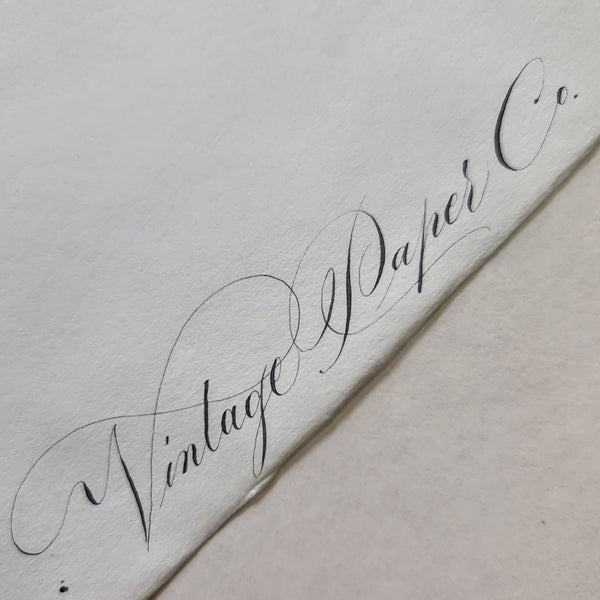 Vintage Paper Co.